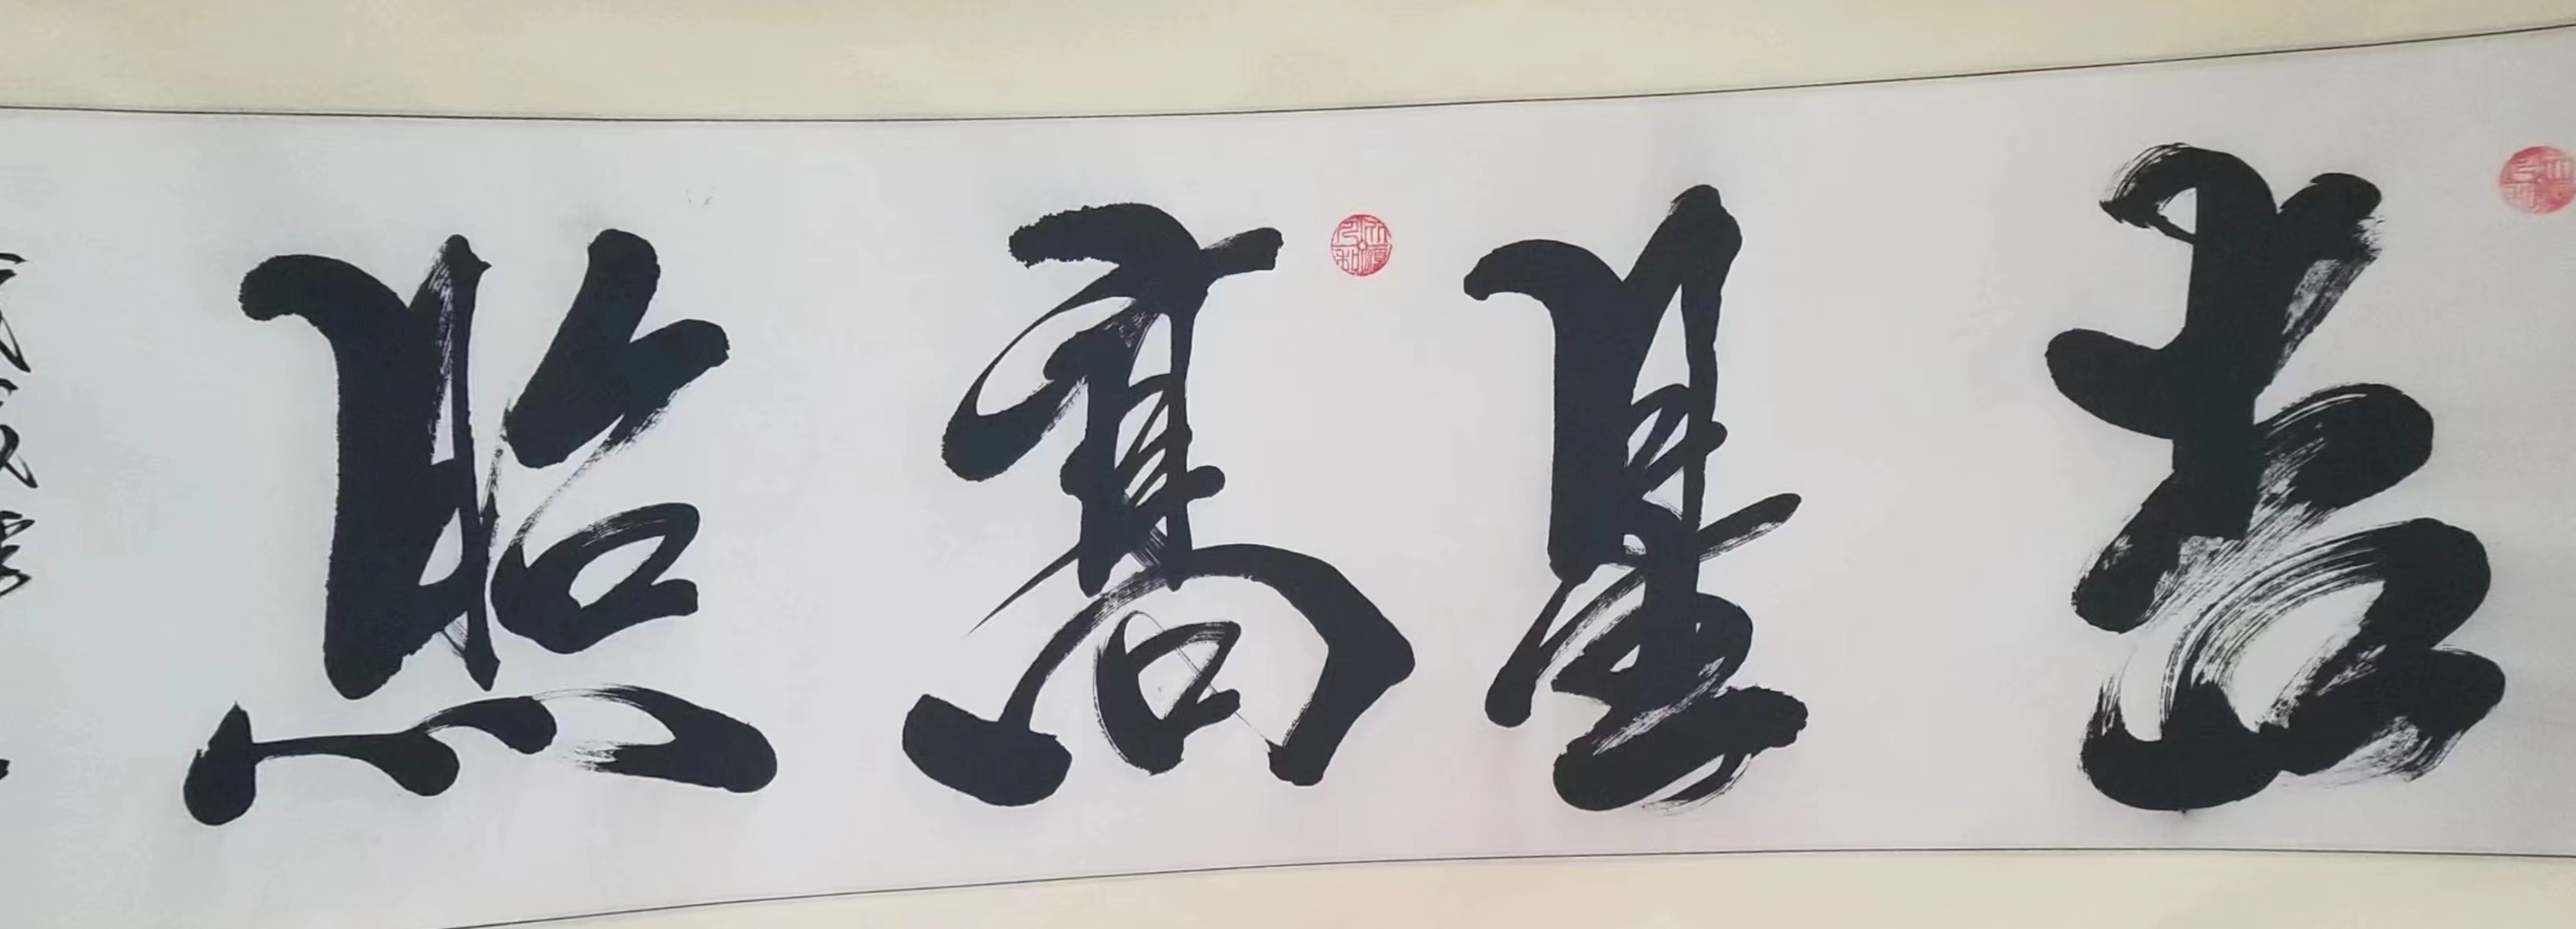 吉星高照